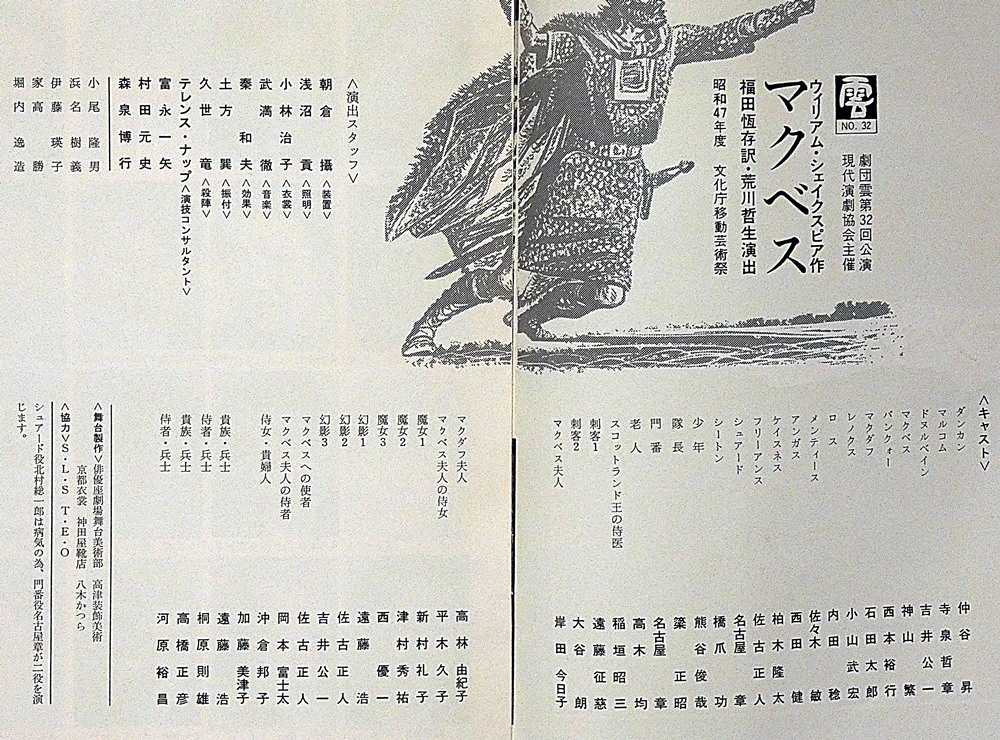 雲
NO. 32
劇団雲第32回公演
現代演劇協会主催
ウィリアム・シェイクスピア作
マクベス
福田恆存訳・荒川哲生演出
昭和47年度 文化庁移動芸術祭
<演出スタッフ>
朝倉 攝<装置>
浅沼 貢<照明>
小林治子<衣裳>
武満 徹<音楽>
秦 和夫<効果>
土方 巽<振付>
久世 竜<殺陣>
テレンス・ナップ<演技コンサルタント>
富永一矢
村田元史
森泉博行
小尾隆男
浜名樹義
伊藤瑛子
家高 勝
堀内逸造
<キャスト>
ダンカン 仲谷 昇
マルコム 寺泉哲章
ドヌルベイン 吉井公一
マクベス 神山 繁
バンクォー 西本裕行
マクダフ 石田太郎
レノクス 小山武宏
ロス 内田 稔
メンティース 佐々木 敏
アンガス 西田 健
ケイスネス 柏木隆太
フリーアンス 佐古正人
シュアード 名古屋 章
シートン 橋爪 功
少年 熊谷俊哉
隊長 築 正昭
門番 名古屋 章
老人 高木 均
スコットランド王の侍医 稲垣昭三
刺客1 遠藤征慈
刺客2 大谷 朗
マクベス夫人 岸田今日子
マクダフ夫人 高林由紀子
マクベス夫人の侍女 平木久子
魔女1 新村礼子
魔女2 津村秀祐
魔女3 西 優一
幻影1 遠藤 浩
幻影2 佐古正人
幻影3 吉井公一
マクベスへの使者 佐古正人
マクベス夫人の侍者 岡本富士太
侍女・貴婦人 沖倉邦子
加藤美津子
貴族・兵士 遠藤 浩
侍者・兵士 桐原則雄
貴族・兵士 高橋正彦
侍者・兵士 河原裕昌
<舞台製作>俳優座劇場舞台美術部 高津装飾美術
京都衣裳 神田屋靴店 八木かつら
<協力>S・L・S T・E・O
シュアード役北村総一郎は病気の為、門番役名古屋章が二役を演
じます。